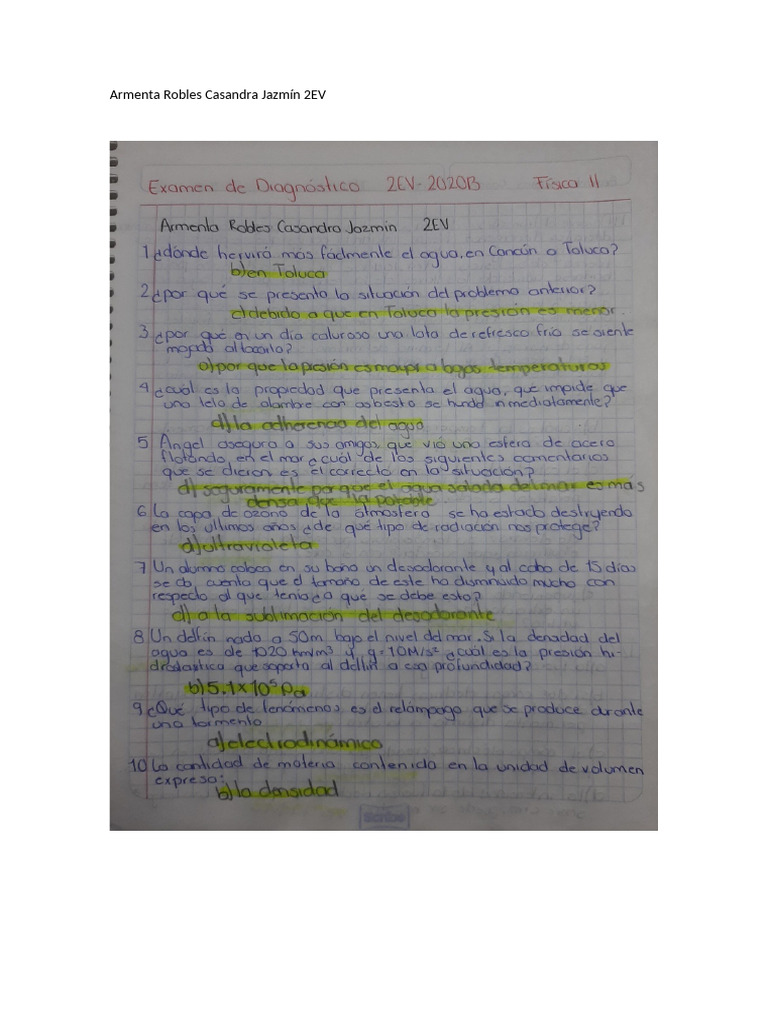 Armenta Robles Casandra Jazmín 2EV
Examen de Diagnóstico 2EV-2020B Física II
Armenta Robles Casandra Jazmin 2EV
1 ¿dónde hervirá más fácilmente el agua, en Cancún o Toluca?
b) en Toluca
2 ¿por qué se presenta la situación del problema anterior?
c) debido a que en Toluca la presión es menor.
3 ¿por qué en un día caluroso una lata de refresco frío se siente
mojada al tocarla?
a) por que la presión es mayor a bajas temperaturas
4 ¿cuál es la propiedad que presenta el agua, que impide que
una tela de alambre con asbesto se hunda inmediatamente?
d) la adherencia del agua
5 Ángel asegura a sus amigos que vió una esfera de acero
flotando, en el mar ¿cuál de los siguientes comentarios
que se dieron es el correcto en la situación?
d) seguramente por que el agua salada del mar es más
densa que la potable
6 La capa de ozono de la atmosfera se ha estado destruyendo
en los ultimos años ¿de qué tipo de radiación nos protege?
d) ultravioleta
7 Un alumno coloca en su baño un desodorante y al cabo de 15 días
se da cuenta que el tamaño de este ha disminuido mucho con
respecto al que tenía ¿a que se debe esto?
d) a la sublimación del desodorante
8 Un delfín nada a 50m bajo el nivel del mar. Si la densidad del
agua es de 1020 Km/m³ y g=10M/s² ¿cuál es la presión hi-
drostastica que soporta al delfín a esa profundidad?
b) 5.1x10⁵ Pa
9 ¿Qué tipo de fenómenos es el relámpago que se produce durante
una tormenta
a) electrodinámico
10 La cantidad de materia contenida en la unidad de volumen
expresa:
b) la densidad
Scribe